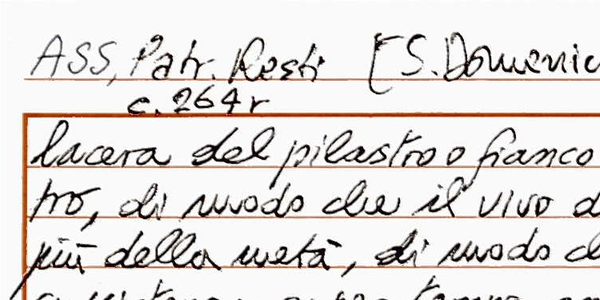 ASS, Patr. Resti [S. Domenic
c. 264r
lacera del pilastro o fianco
tro, di modo che il vivo d
più della metà, di modo ch